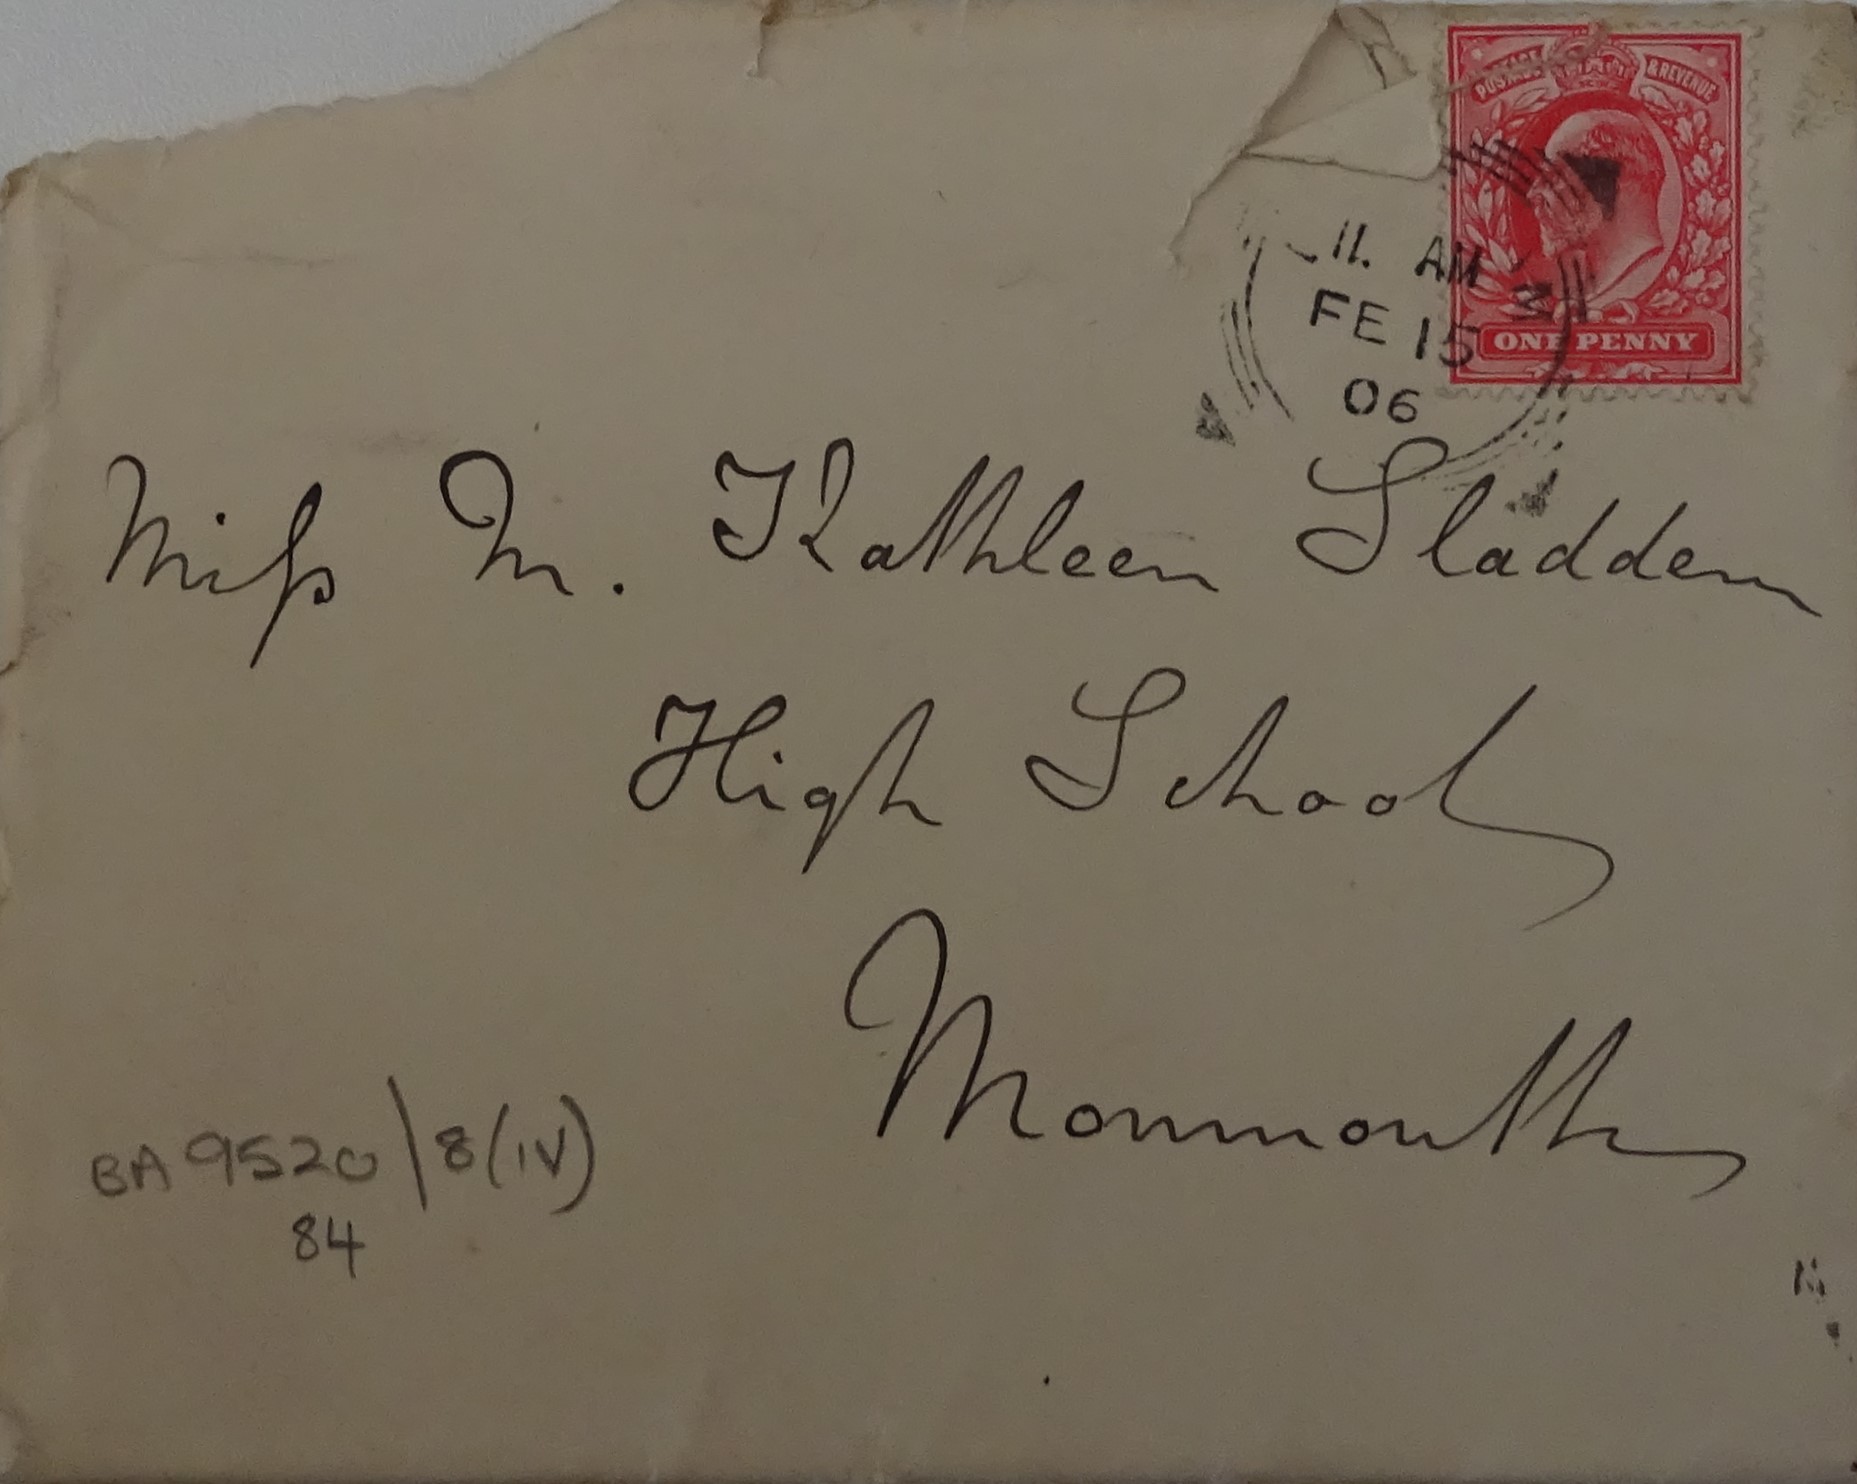 POSTAGE & REVENUE
11. AM
FE 15
06
ONE PENNY
Miss M. Kathleen Sladden
High School
Monmouth
BA 9520\8(IV)
84